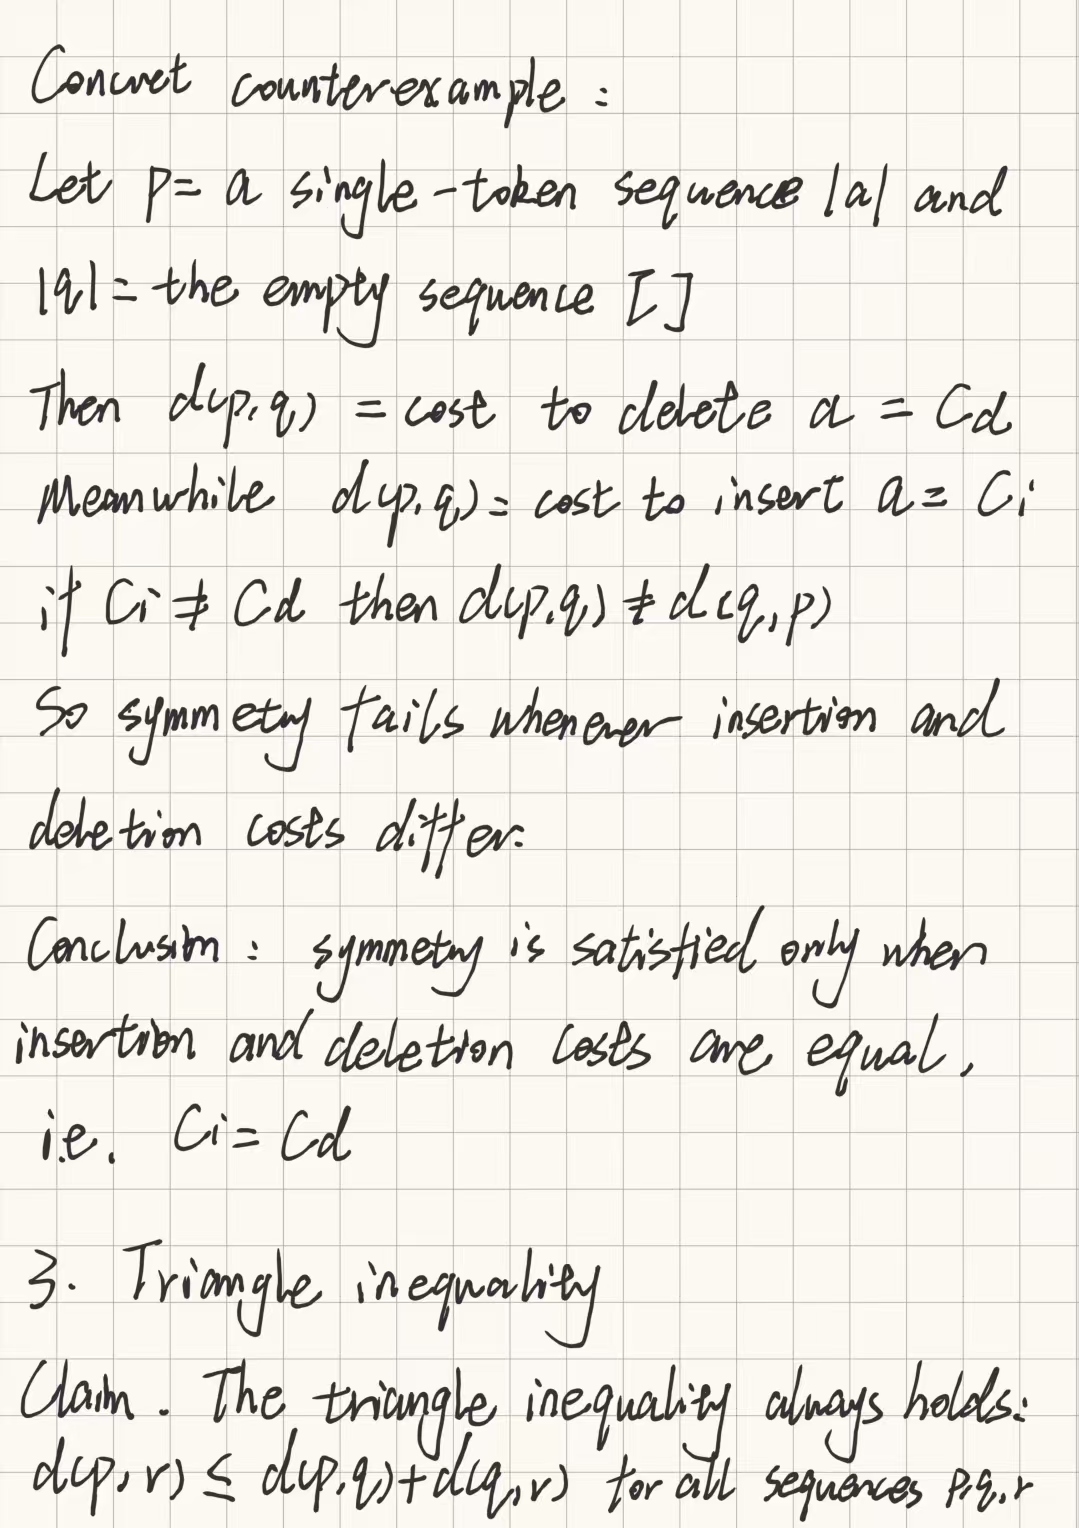 Concret counterexample :
Let p= a single-token sequence |a| and
|q|= the empty sequence []
Then d(p,q) = cost to delete a = Cd
Meanwhile d(p,q)= cost to insert a= Ci
if Ci ≠ Cd then d(p,q) ≠ d(q,p)
So symmetry fails whenever insertion and
deletion costs differ.
Conclusion : symmetry is satisfied only when
insertion and deletion costs are equal,
i.e. Ci= Cd
3. Triangle inequality
Claim. The triangle inequality always holds:
d(p,r) ≤ d(p,q)+d(q,r) for all sequences p,q,r